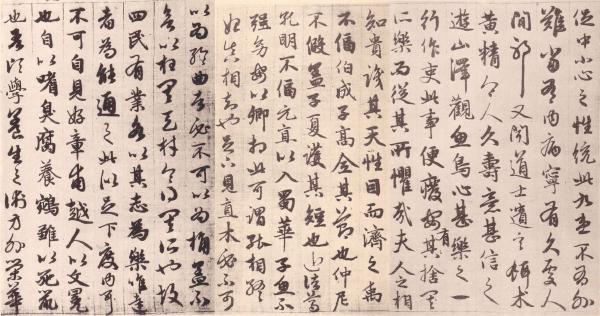 促中小心之性統此九患不有外
難當有內病寧有久處人
間邪又聞道士遺言餌朮
黃精令人久壽意甚信之
遊山澤觀魚鳥心甚樂之一
行作吏此事便廢安有捨其
所樂而從其所懼哉夫人之相
知貴識其天性因而濟之禹
不偪伯成子高全其節也仲尼
不假蓋子夏護其短也近諸葛
孔明不偪元直以入蜀華子魚不
強幼安以卿相此可謂能相終
始真相知者也足下見直木必不可
以為輪曲者必不可以為桷蓋不
欲以枉其天材令得其所也故
四民有業各以其志為樂唯達
者為能通之此似足下度內耳
不可自見好章甫越人以文冕
也自以嗜臭腐養鴛雛以死鼠
也吾頃學養生之術方外榮華